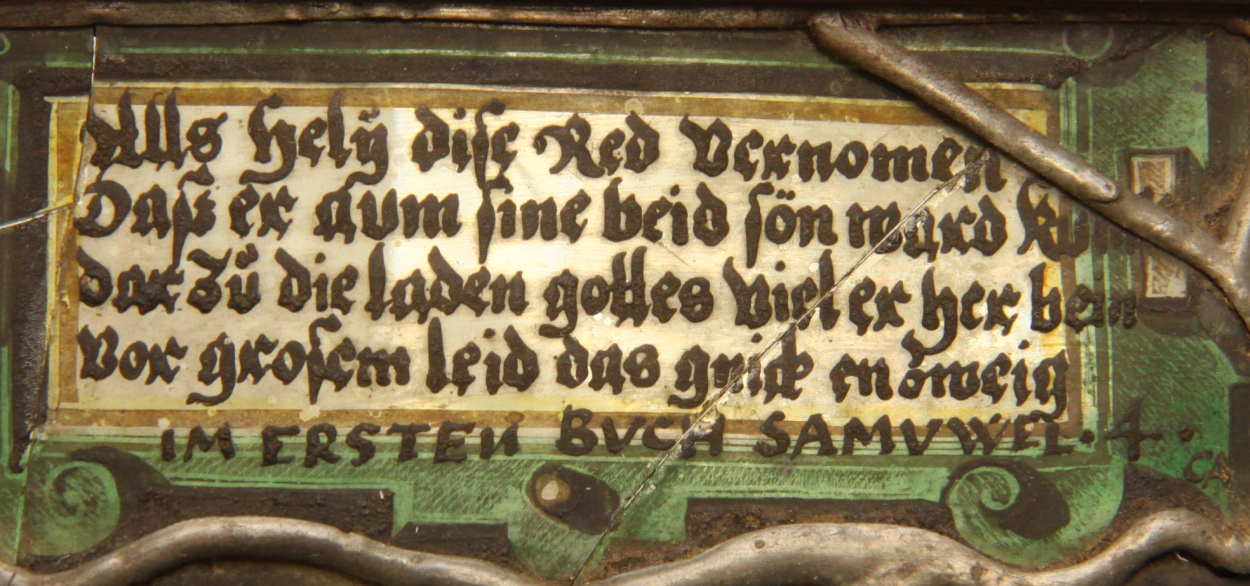 Alls Hely dise Red vernomen
Daß er aum sine beid sön ward
dar Zů die laden gottes viel er her bein
vor grosem leid das gnick enzweig
IM ERSTEN BVCH SAMVWEL. 4.
CA